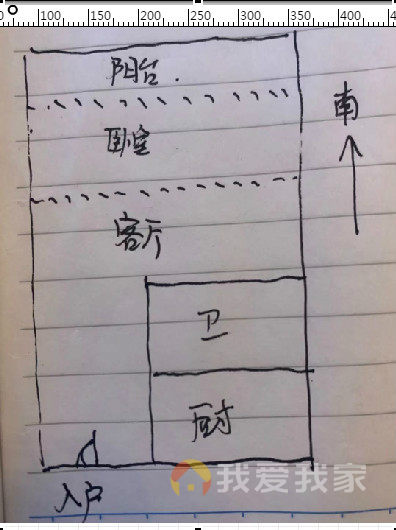 0 100 150 200 250 300 350 400 45
阳台.
南
卧室
客厅
卫
厨
入户
我爱我家